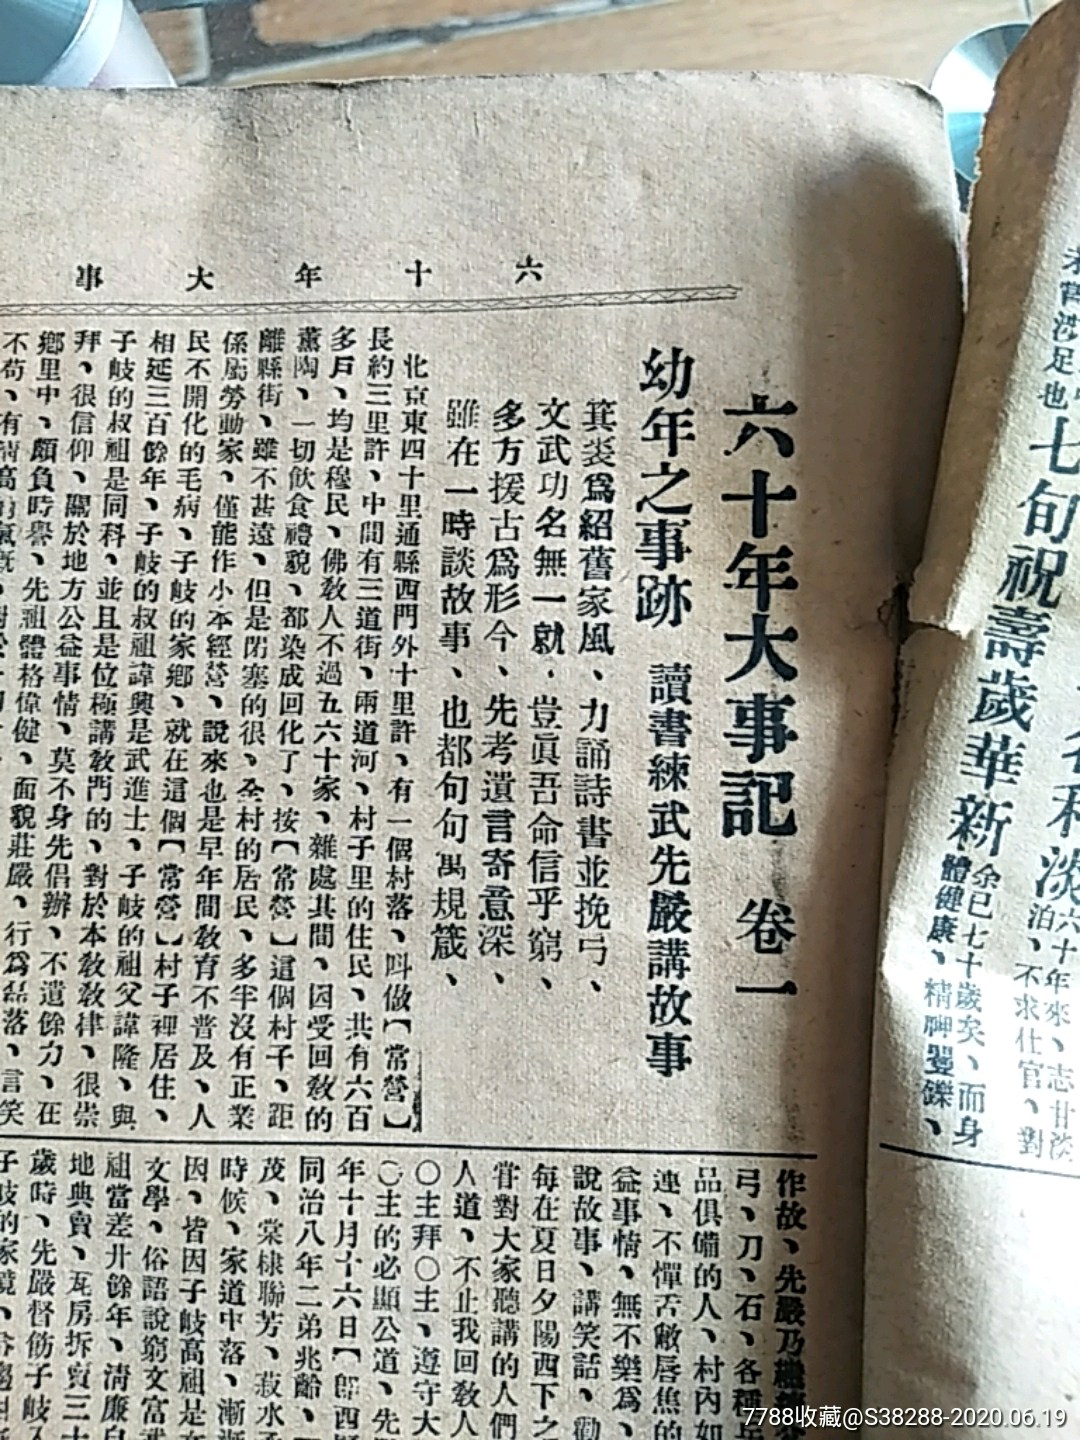 六十年大事
六十年大事記 卷一
幼年之事跡 讀書練武先嚴講故事
箕裘爲紹舊家風、力誦詩書並挽弓、
文武功名無一就、豈眞吾命信乎窮、
多方援古爲形今、先考遺言寄意深、
雖在一時談故事、也都句句寓規箴、
北京東四十里通縣西門外十里許、有一個村落、叫做【常營】
長約三里許、中間有三道街、兩道河、村子里的住民、共有六百
多戶、均是穆民、佛敎人不過五六十家、雜處其間、因受回敎的
薰陶、一切飲食禮貌、都染成回化了、按【常營】這個村子、距
離縣街、雖不甚遠、但是閉塞的很、全村的居民、多半沒有正業
係屬勞動家、僅能作小本經營、說來也是早年間敎育不普及、人
民不開化的毛病、子岐的家鄉、就在這個【常營】村子裡居住、
相延三百餘年、子岐的叔祖諱興是武進士、子岐的祖父諱隆、與
子岐的叔祖是同科、並且是位極講敎門的、對於本敎敎律、很崇
拜、很信仰、關於地方公益事情、莫不身先倡辦、不遺餘力、在
鄉里中、頗負時譽、先祖體格偉健、面貌莊嚴、行爲磊落、言笑
不苟、有淸高的氣
作故、先嚴乃繼
弓、刀、石、各種
品俱備的人、村內如
連、不憚舌敝唇焦的
益事情、無不樂爲、
說故事、講笑話、勸
每在夏日夕陽西下之
甞對大家聽講的人們
人道、不止我回敎人
〇主拜〇主、遵守大
〇主的必顯公道、先
年十月十六日【卽西
同治八年二弟兆齡、
茂、棠棣聯芳、菽水
時候、家道中落、漸
因、皆因子岐高祖是
文學、俗語說窮文富
祖當差廿餘年、淸廉
地典賣、瓦房拆賣三
歲時、先嚴督飭子岐
子岐的家境、
七旬祝壽歲華新
余已七十歲矣、而身
體健康、精神矍鑠、
六十年來、志甘淡
泊、不求仕宦、對
7788收藏@S38288-2020.06.19